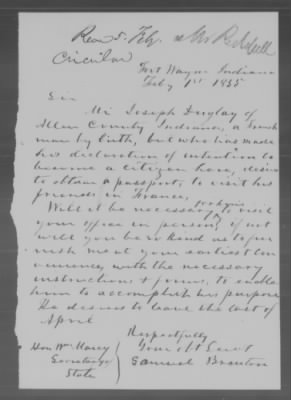 Recd 5. Feby. Mr
Circular
Fort Wayne Indiana
Feby 1st 1855
Sir
Mr Joseph of
Allen County Indiana, a French
man by birth, but who has made
his declaration of intention to
become a citizen here, desires
to obtain a passport, to visit his
friends in France,
for him
Will it be necessary to visit
your office in person; if not
will you be so kind as to fur
nish me at your earliest con
venience, with the necessary
instructions & forms, to enable
him to accomplish his purpose
He desires to leave the last of
April
Respectfully
Your Obt Servt
Samuel Brenton
Hon Wm Marcy
Secretary of
State